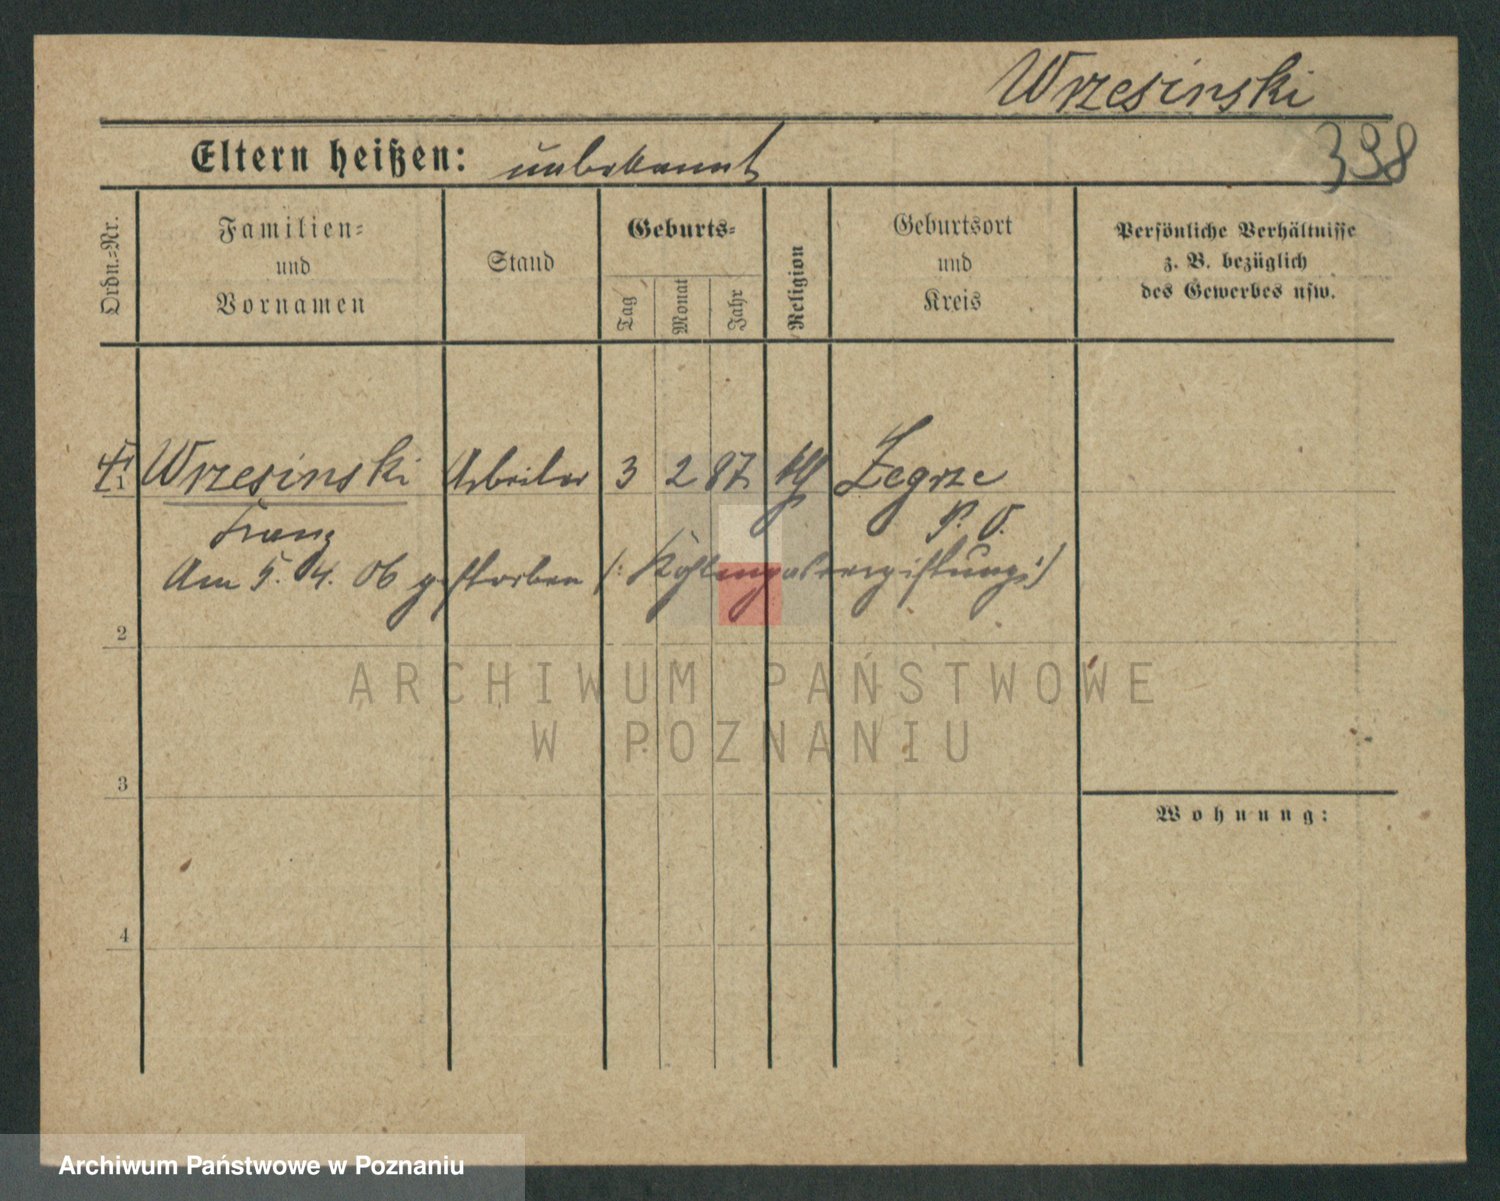 Wrzesinski
398
Eltern heißen: unbekannt
Ordn.=Nr.
Familien=
und
Vornamen
Stand
Geburts=
Tag
Monat
Jahr
Religion
Geburtsort
und
Kreis
Persönliche Verhältnisse
z. B. bezüglich
des Gewerbes usw.
1 Wrzesinski Arbeiter 3 2 87. kth Zegrze
Franz P. O.
Am 5. 4. 06 gestorben (: Kohlengasvergiftung :)
2
ARCHIWUM PAŃSTWOWE
W POZNANIU
3
Wohnung:
4
Archiwum Państwowe w Poznaniu